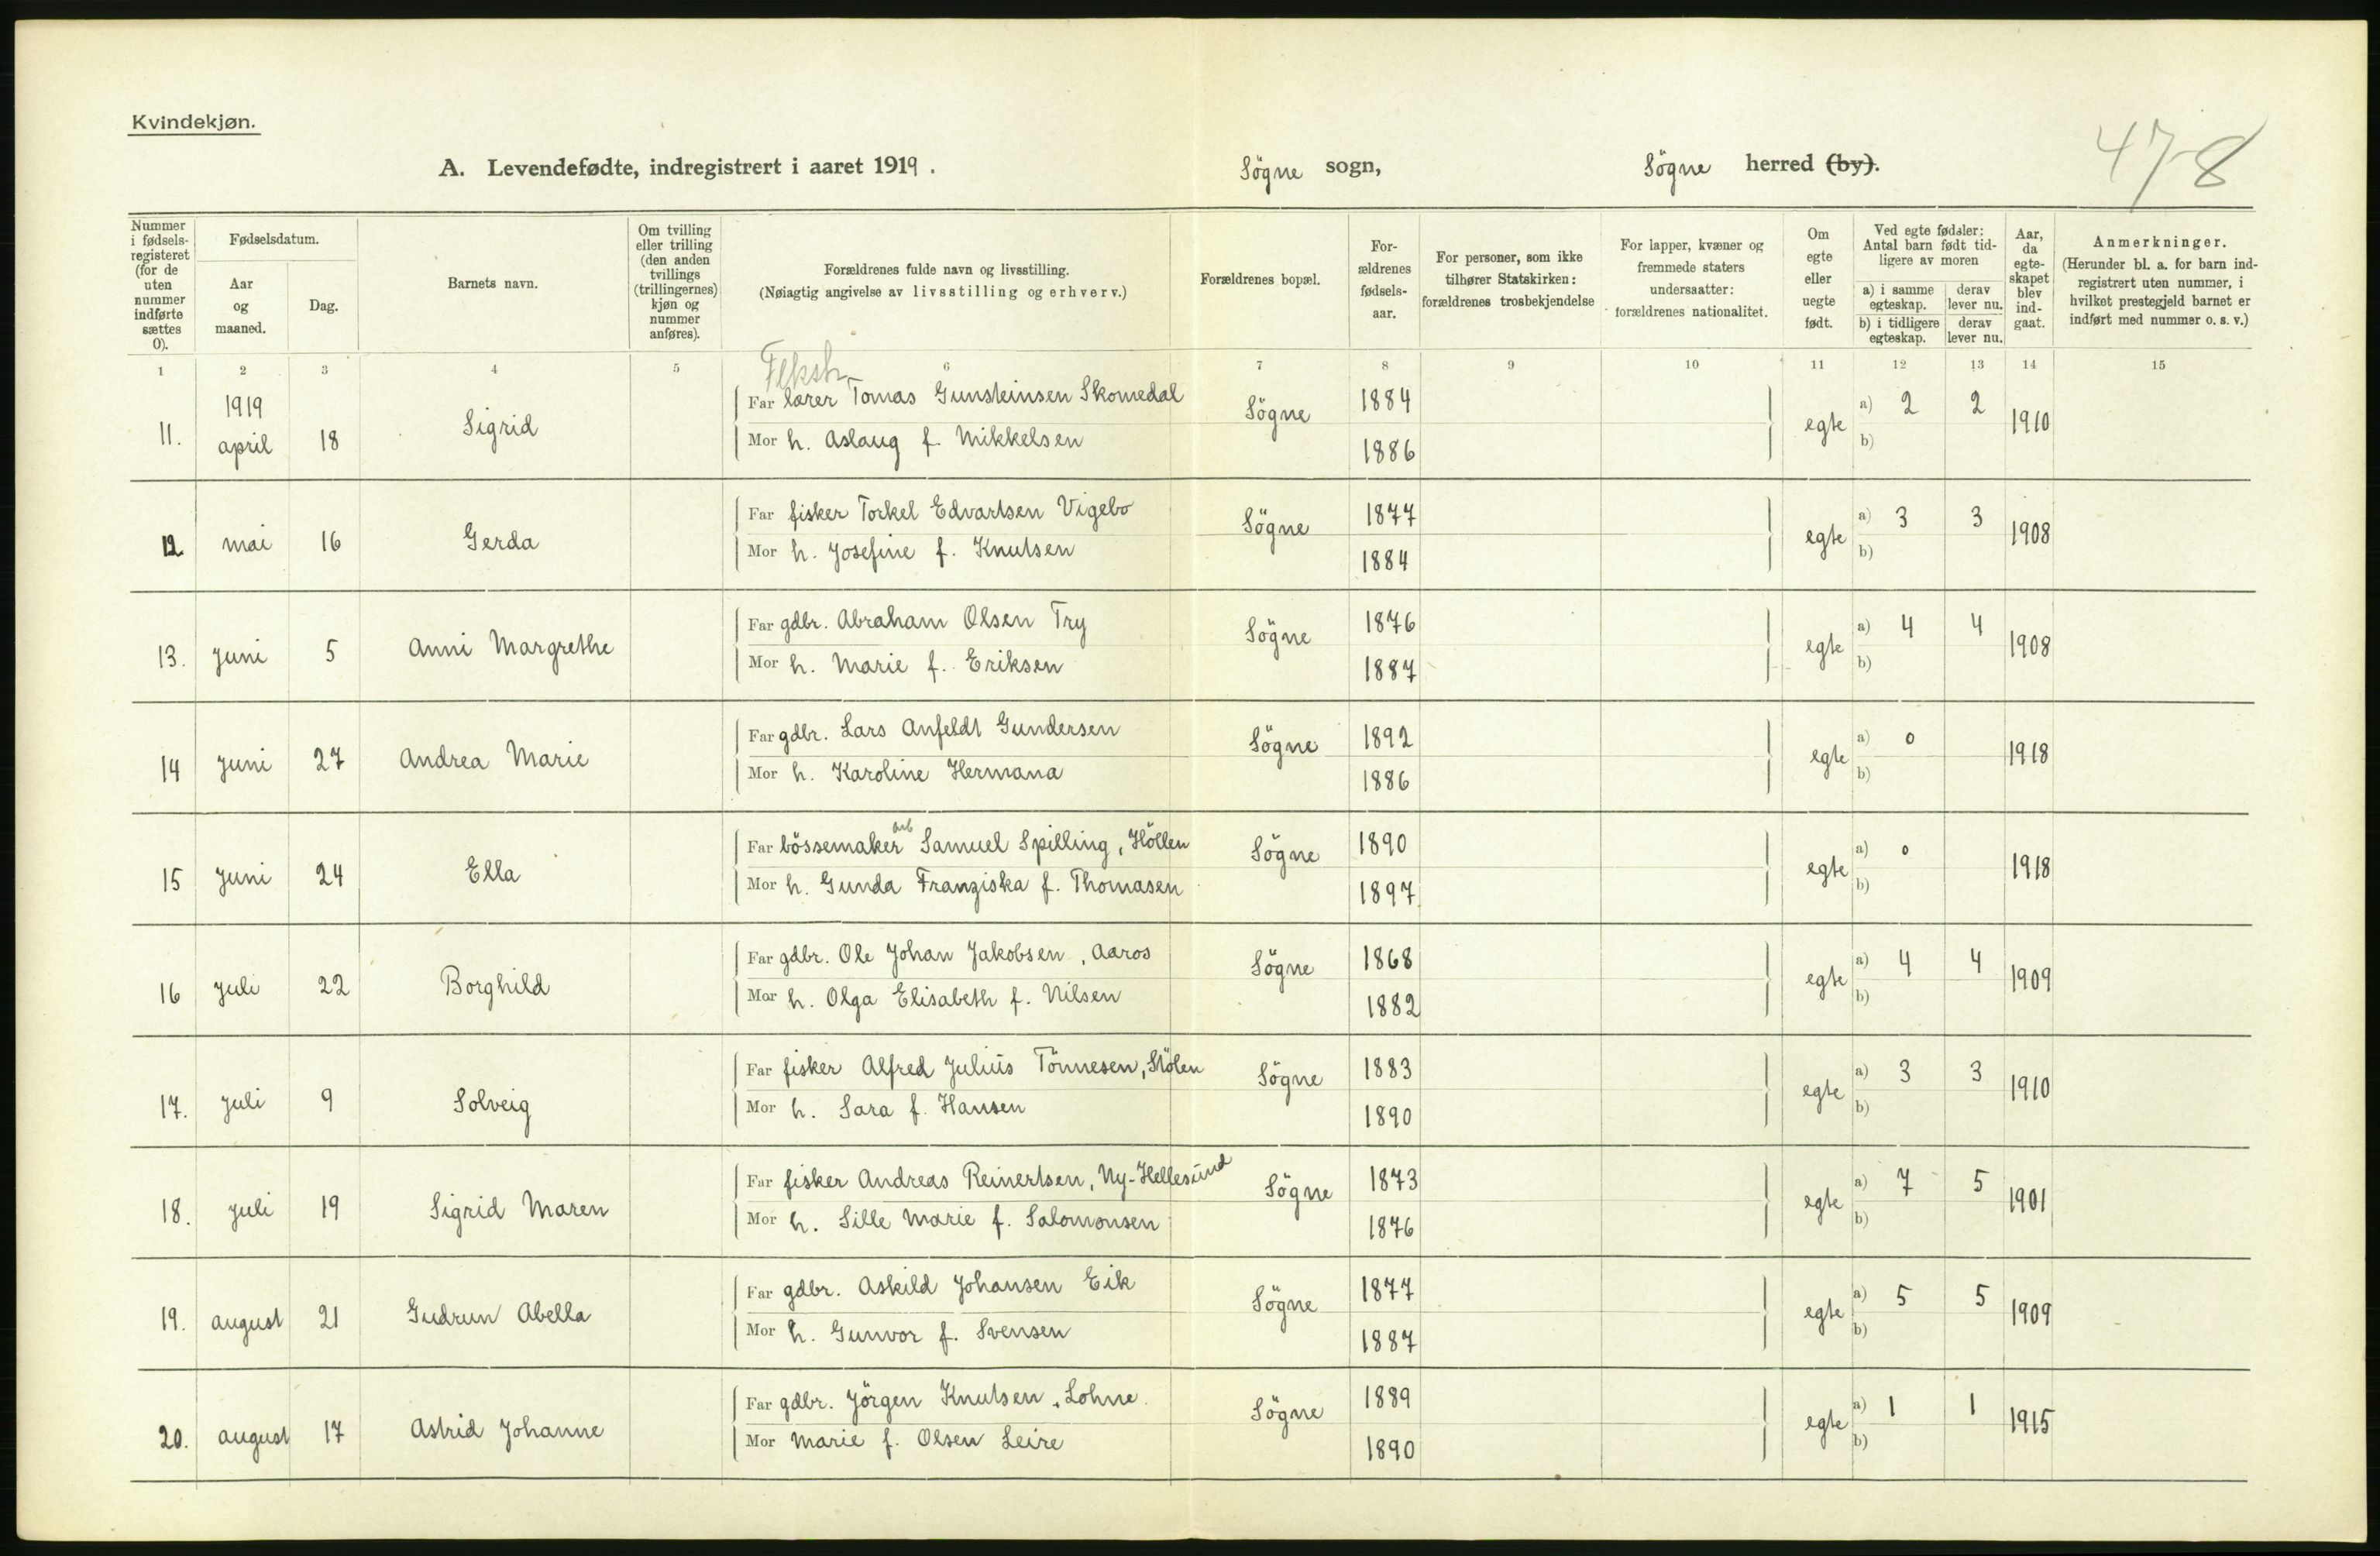 Kvindekjøn.
A. Levendefødte, indregistrert i aaret 1919. Søgne sogn, Søgne herred (by).
478
Nummer i fødsels-registeret (for de uten nummer indførte sættes 0).
Fødselsdatum.
Aar og maaned.
Dag.
Barnets navn.
Om tvilling eller trilling (den anden tvillings (trillingernes) kjøn og nummer anføres).
Forældrenes fulde navn og livsstilling.
(Nøiagtig angivelse av livsstilling og erhverv.)
Forældrenes bopæl.
For-ældrenes fødsels-aar.
For personer, som ikke tilhører Statskirken: forældrenes trosbekjendelse
For lapper, kvæner og fremmede staters undersaatter: forældrenes nationalitet.
Om egte eller uegte født.
Ved egte fødsler: Antal barn født tid-ligere av moren
a) i samme egteskap. derav lever nu.
b) i tidligere egteskap. derav lever nu.
Aar, da egte-skapet blev ind-gaat.
Anmerkninger.
(Herunder bl. a. for barn ind-registrert uten nummer, i hvilket prestegjeld barnet er indført med nummer o. s. v.)
1 2 3 4 5 6 7 8 9 10 11 12 13 14 15
1919
Far lærer Tomas Gunsteinsen Skomedal 1884 a) 2 2
11. april 18 Sigrid Søgne egte 1910
Mor h. Aslaug f. Mikkelsen 1886 b)
Far fisker Torkel Edvartsen Vigebo 1877 a) 3 3
12 mai 16 Gerda Søgne egte 1908
Mor h. Josefine f. Knutsen 1884 b)
Far gdbr. Abraham Olsen Try 1876 a) 4 4
13. juni 5 Anni Margrethe Søgne egte 1908
Mor h. Marie f. Eriksen 1887 b)
Far gdbr. Lars Anfeldt Gundersen 1892 a) 0
14 juni 27 Andrea Marie Søgne egte 1918
Mor h. Karoline Hermana 1886 b)
Far bössemaker arb Samuel Spilling, Höllen 1890 a) 0
15 juni 24 Ella Søgne egte 1918
Mor h. Gunda Franziska f. Thomasen 1897 b)
Far gdbr. Ole Johan Jakobsen, Aaros 1868 a) 4 4
16 juli 22 Borghild Søgne egte 1909
Mor h. Olga Elisabeth f. Nilsen 1882 b)
Far fisker Alfred Julius Tönnesen, Stölen 1883 a) 3 3
17. juli 9 Solveig Søgne egte 1910
Mor h. Sara f. Hansen 1890 b)
Far fisker Andreas Reinertsen, Ny-Hellesund 1873 a) 7 5
18. juli 19 Sigrid Maren Søgne egte 1901
Mor h. Sille Marie f. Salomonsen 1876 b)
Far gdbr. Askild Johansen Eik 1877 a) 5 5
19. august 21 Gudrun Abella Søgne egte 1909
Mor h. Gunvor f. Svensen 1887 b)
Far gdbr. Jörgen Knutsen, Lohne 1889 a) 1 1
20. august 17 Astrid Johanne Søgne egte 1915
Mor Marie f. Olsen Leire 1890 b)